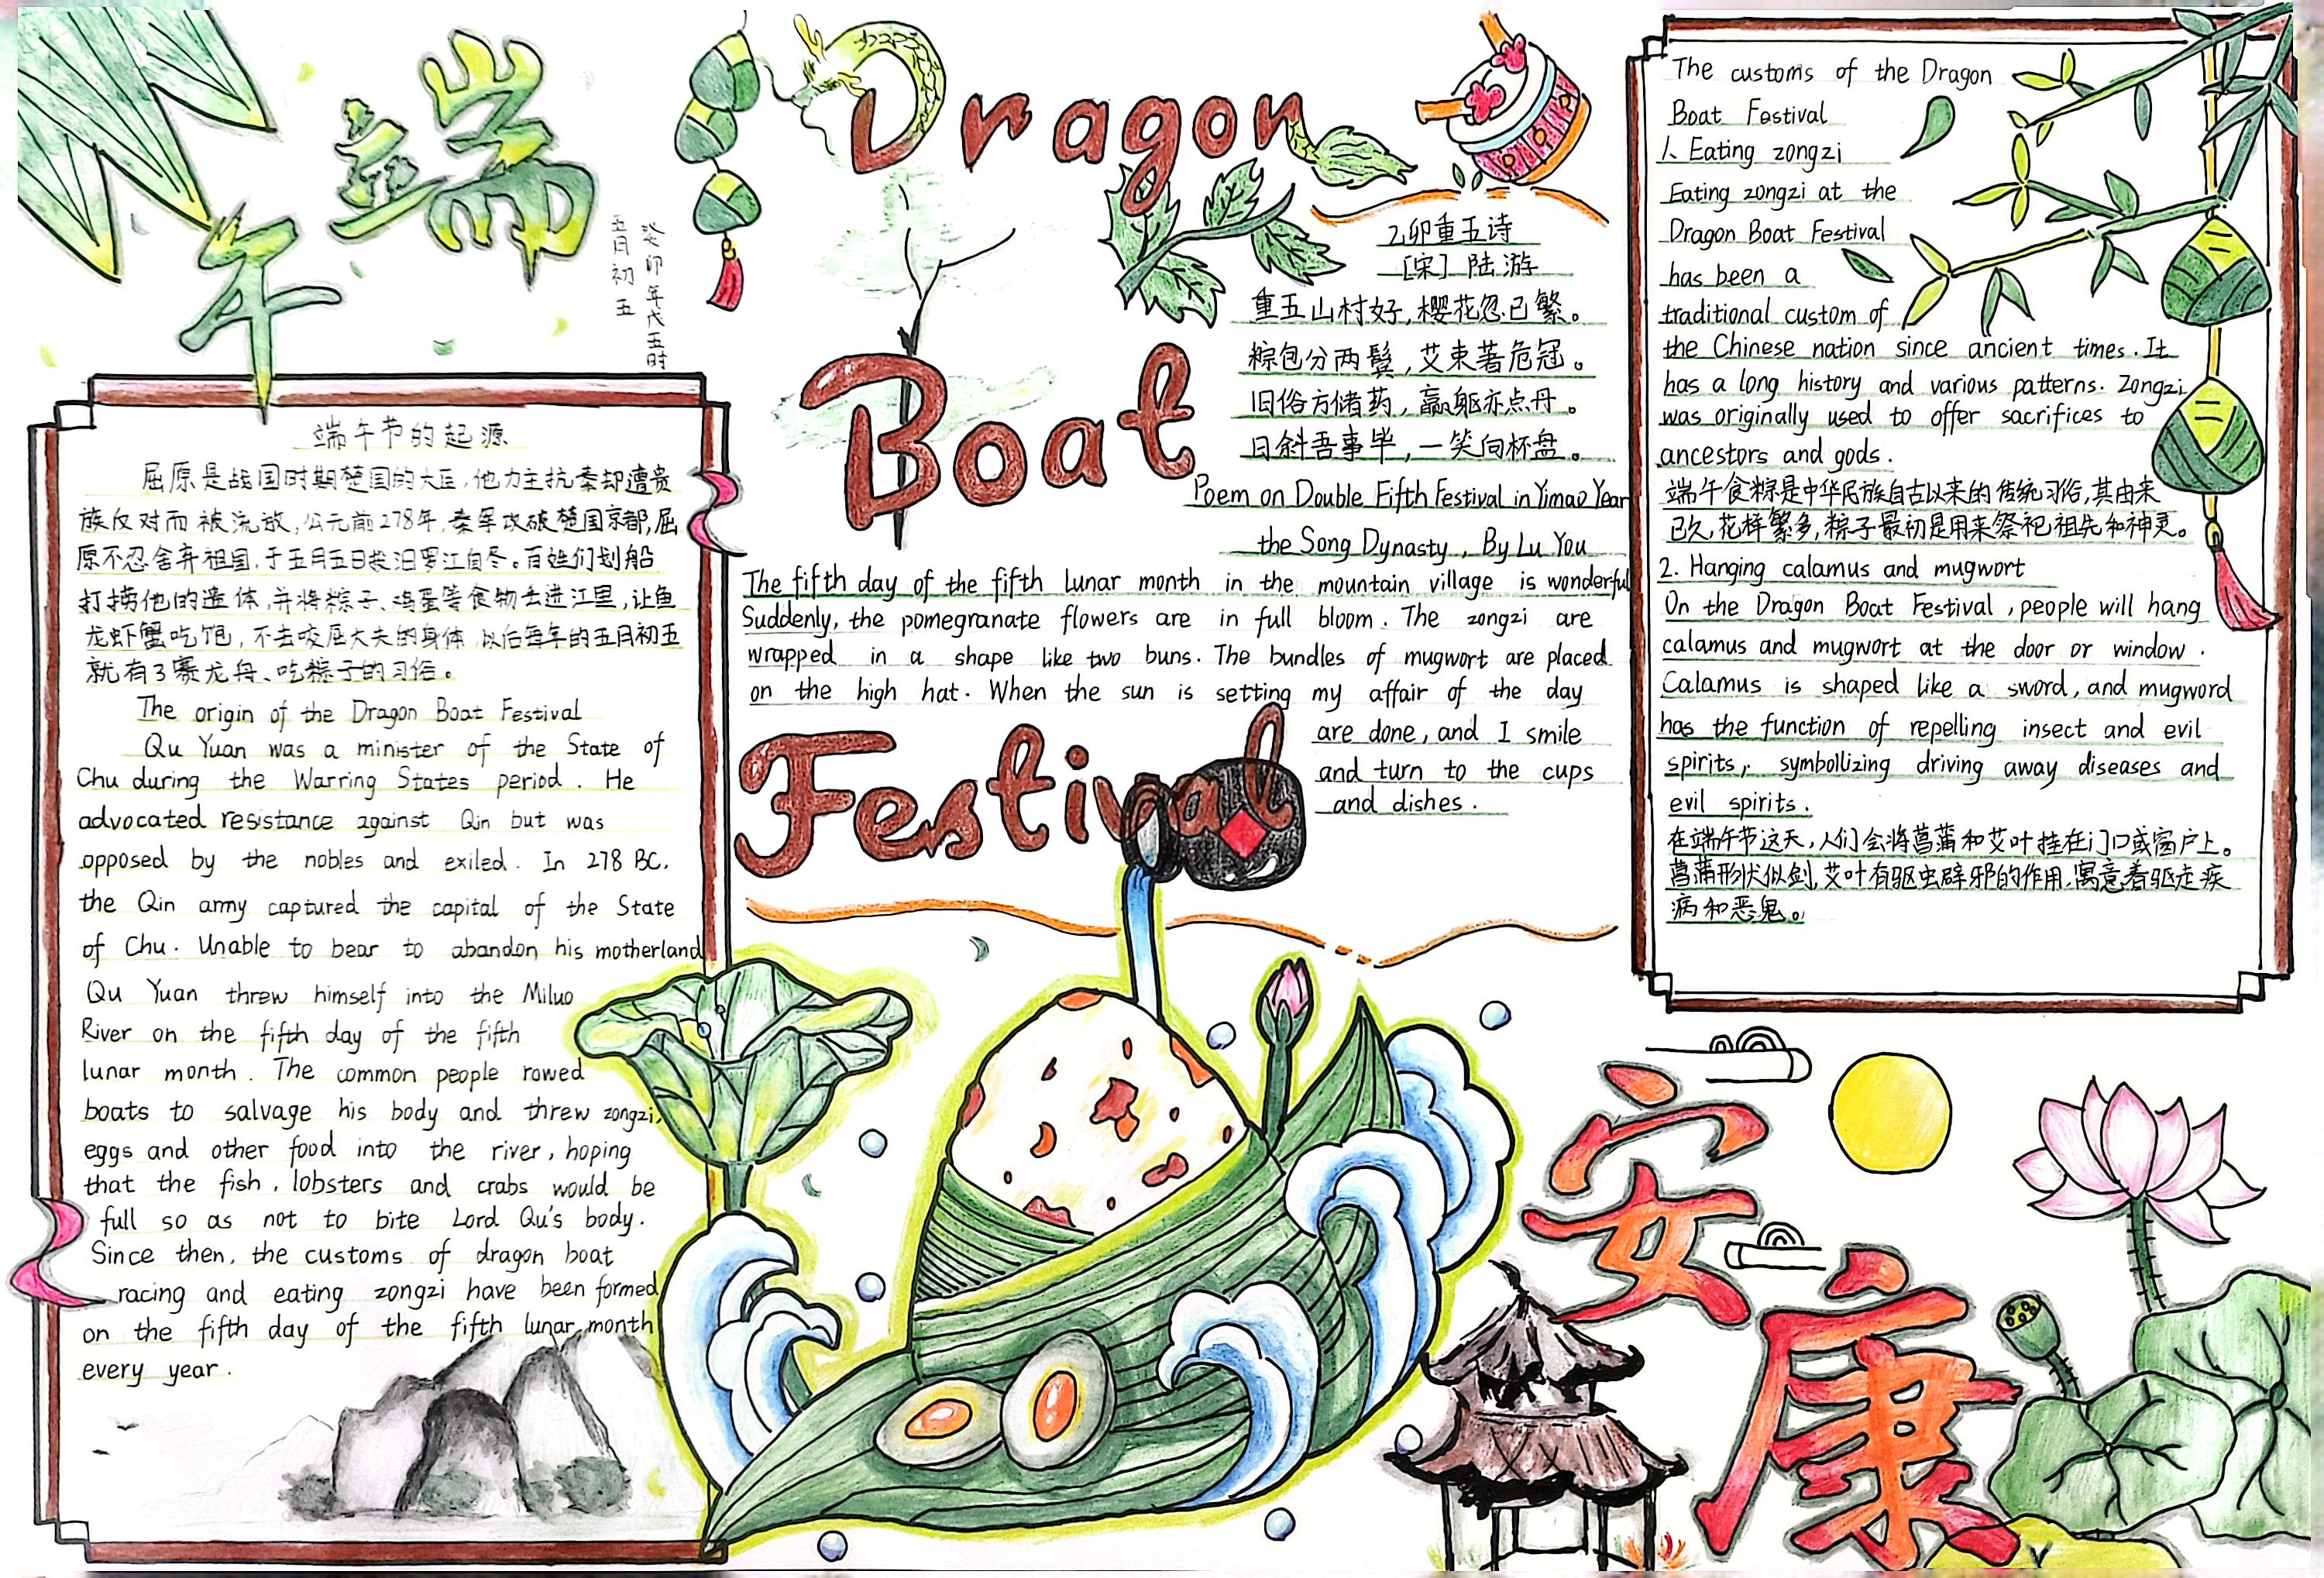 端午
癸卯年戊五时
五月初五
端午节的起源
屈原是战国时期楚国的大臣,他力主抗秦却遭贵
族反对而被流放,公元前278年,秦军攻破楚国京都,屈
原不忍舍弃祖国,于五月五日投汨罗江自尽。百姓们划船
打捞他的遗体,并将粽子、鸡蛋等食物丢进江里,让鱼
龙虾蟹吃饱,不去咬屈大夫的身体,以后每年的五月初五
就有了赛龙舟、吃粽子的习俗。
The origin of the Dragon Boat Festival
Qu Yuan was a minister of the State of
Chu during the Warring States period. He
advocated resistance against Qin but was
opposed by the nobles and exiled. In 278 BC,
the Qin army captured the capital of the State
of Chu. Unable to bear to abandon his motherland
Qu Yuan threw himself into the Miluo
River on the fifth day of the fifth
lunar month. The common people rowed
boats to salvage his body and threw zongzi,
eggs and other food into the river, hoping
that the fish, lobsters and crabs would be
full so as not to bite Lord Qu's body.
Since then, the customs of dragon boat
racing and eating zongzi have been formed
on the fifth day of the fifth lunar month
every year.
Dragon
Boat
Festival
乙卯重五诗
[宋] 陆游
重五山村好,榴花忽已繁。
粽包分两髻,艾束著危冠。
旧俗方储药,羸躯亦点丹。
日斜吾事毕,一笑向杯盘。
Poem on Double Fifth Festival in Yimao Year
the Song Dynasty, By Lu You
The fifth day of the fifth lunar month in the mountain village is wonderful
Suddenly, the pomegranate flowers are in full bloom. The zongzi are
wrapped in a shape like two buns. The bundles of mugwort are placed
on the high hat. When the sun is setting my affair of the day
are done, and I smile
and turn to the cups
and dishes.
The customs of the Dragon
Boat Festival
1、Eating zongzi
Eating zongzi at the
Dragon Boat Festival
has been a
traditional custom of
the Chinese nation since ancient times. It
has a long history and various patterns. Zongzi
was originally used to offer sacrifices to
ancestors and gods.
端午食粽是中华民族自古以来的传统习俗,其由来
已久,花样繁多,粽子最初是用来祭祀祖先和神灵。
2. Hanging calamus and mugwort
On the Dragon Boat Festival, people will hang
calamus and mugwort at the door or window.
Calamus is shaped like a sword, and mugword
has the function of repelling insect and evil
spirits, symbollizing driving away diseases and
evil spirits.
在端午节这天,人们会将菖蒲和艾叶挂在门口或窗户上。
菖蒲形状似剑,艾叶有驱虫辟邪的作用,寓意着驱走疾
病和恶鬼。
安康